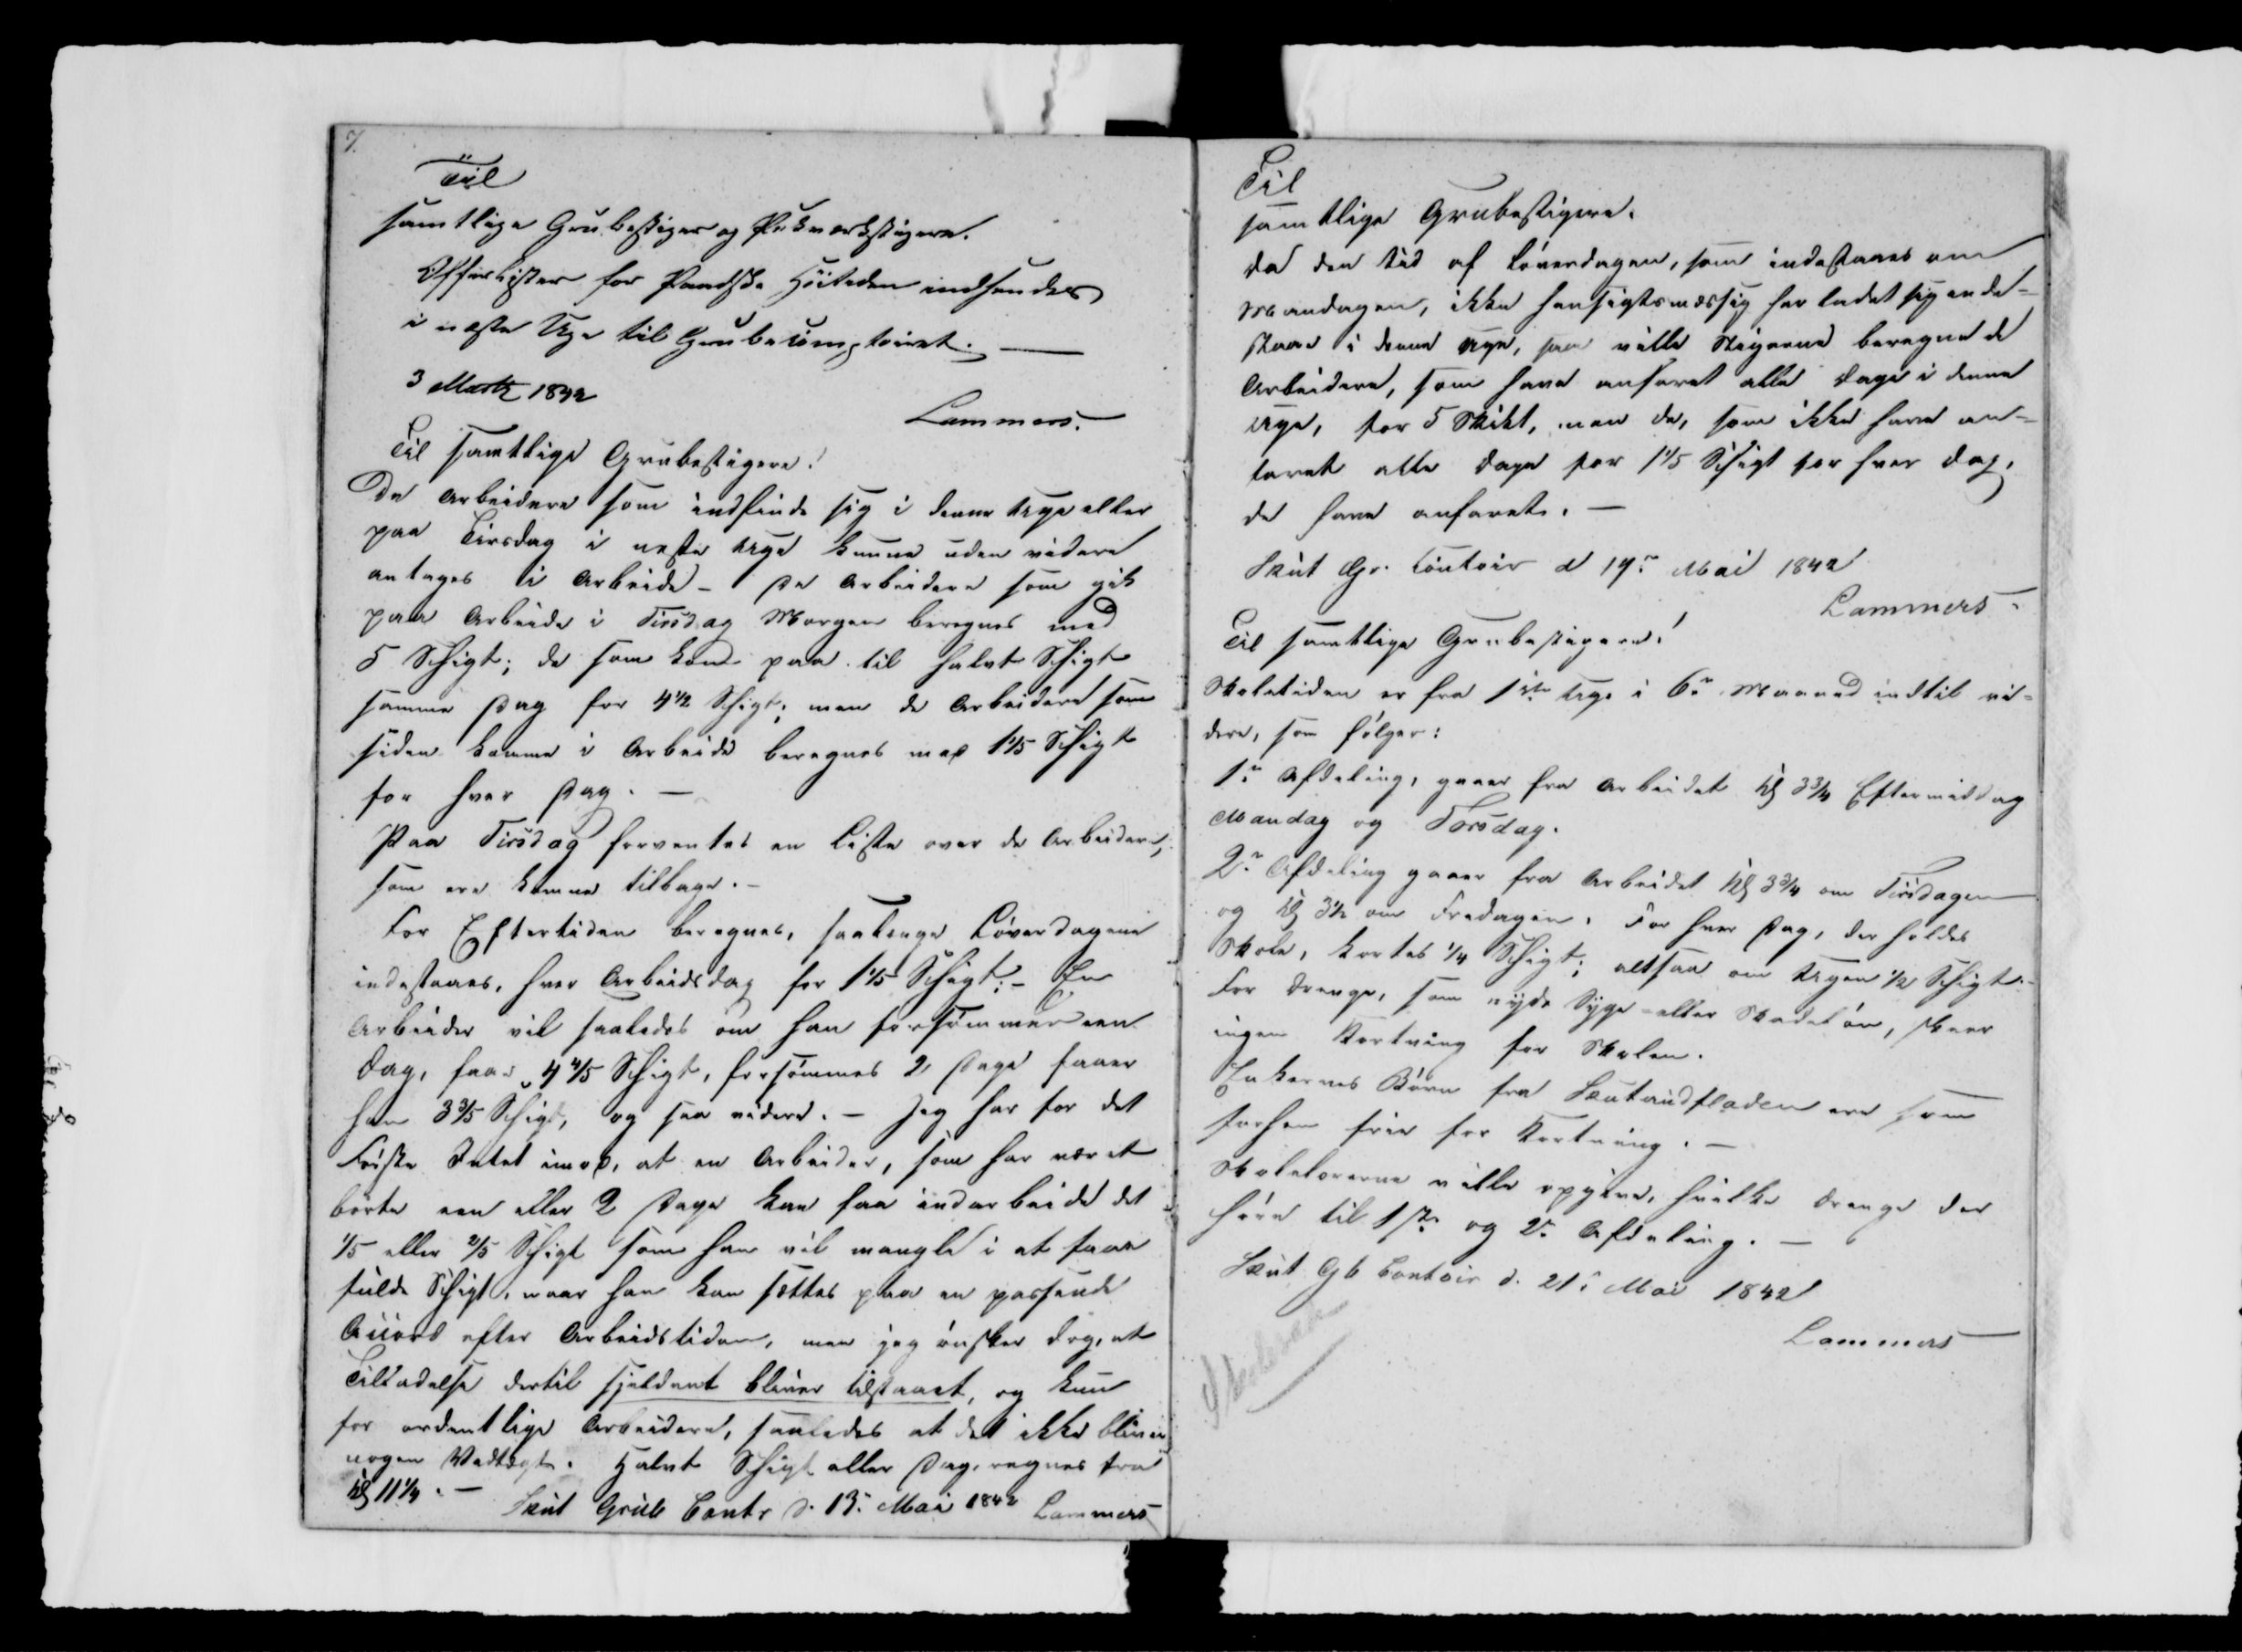 7.
Til
samtlige Grubestiger og Pukværkstigere.
Offerlister for Paaske Høitiden indsendes
i næste Uge til Grubecomptoiret. —
3 Marts 1842
Lammers.
Til samtlige Grubestigere!
De Arbeidere som indfinde sig i denne Uge eller
paa Tirsdag i næste Uge kunne uden videre
antages i Arbeide – De Arbeidere som gik
paa Arbeide i Tirsdag Morgen beregnes med
5 Schigt; de som kom paa til halvt Schigt
samme Dag for 4 1/2 Schigt; men de Arbeidere som
siden komme i Arbeide beregnes med 1 1/5 Schigt
for hver Dag. —
Paa Tirsdag forventes en Liste over de Arbeidere,
som ere komne tilbage. –
For Eftertiden beregnes, saalænge Løverdagene
indestaaes, hver Arbeidsdag for 1 1/5 Schigt; – En
Arbeider vil saaledes om han forsømmer een
Dag, faae 4 4/5 Schigt, forsømmes 2 Dage faaer
han 3 3/5 Schigt, og saa videre. – Jeg har for det
Første Intet imod, at en Arbeider, som har været
borte een eller 2 Dage kan faa indarbeide det
1/5 eller 2/5 Schigt som han vil mangle i at faae
fulde Schigt, naar han kan sættes paa en passende
Accord efter Arbeidstiden, men jeg ønsker dog, at
Tilladelse dertil sjeldent bliver tilstaaet, og kun
for ordentlige Arbeidere, saaledes at det ikke bliver
nogen Vedtægt. Halvt Schigt eller Dag, regnes fra
Kl 11 1/4. –
Skut Grub Contr d. 13. Mai 1842 Lammers
Til
samtlige Grubestigere.
Da den Tid af Løverdagen, som indestaaes om
Mandagen, ikke hensigtsmæssig har ladet sig inde-
staae i denne Uge, saa ville Stigerne beregne de
Arbeidere, som have anfaret alle Dage i denne
Uge, for 5 Skikt, men de, som ikke have an-
faret alle Dage for 1 1/5 Schigt for hver Dag,
de have anfaret. —
Skut Gr. Contoir d 19n Mai 1842
Lammers.
Til samtlige Grubestigere!
Skoletiden er fra 1ste Uge i 6n Maaned indtil vi-
dere, som følger:
1n Afdeling, gaaer fra Arbeidet Kl 3 3/4 Eftermiddag
Mandag og Torsdag.
2n Afdeling gaaer fra Arbeidet Kl 3 3/4 om Tirsdagen
og Kl 3 1/2 om Fredagen. For hver Dag, der holdes
Skole, kortes 1/4 Schigt; altsaa om Ugen 1/2 Schigt.
For Drenge, som nyde Syge- eller Skadeløn, skeer
ingen Kortning for Skolen.
Enkernes Børn fra ere som
forhen frie for Kortning. —
Skolelærerne ville opgive, hvilke Drenge der
høre til 1ste og 2n Afdeling. —
Skut Gb Contoir d. 21n Mai 1842
Lammers